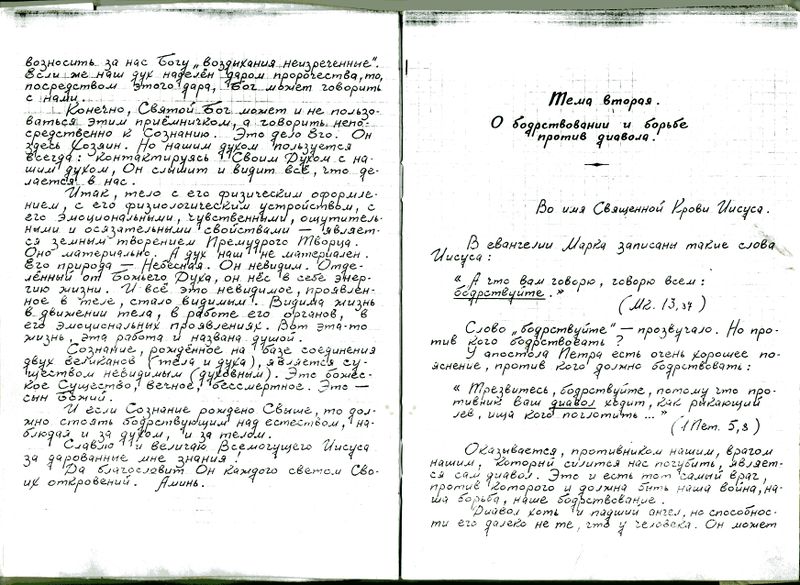 возносить за нас Богу „воздыхания неизреченные“.
Если же наш дух наделён даром пророчества, то,
посредством этого дара, Бог может говорить
с нами.
Конечно, Святой Бог может и не пользо-
ваться этим приёмничком, а говорить непо-
средственно к Сознанию. Это дело Его. Он
здесь Хозяин. Но нашим духом пользуется
всегда: контактируясь Своим Духом с на-
шим духом, Он слышит и видит всё, что де-
лается в нас.
Итак, тело с его физическим оформле-
нием, с его физиологическим устройством, с
его эмоциональными, чувственными, ощутитель-
ными и осязательными свойствами — являет-
ся земным творением Премудрого Творца.
Оно материально. А дух наш не материален.
Его природа — Небесная. Он невидим. Отде-
лённый от Божьего Духа, он нёс в себе энер-
гию жизни. И всё это невидимое, проявлен-
ное в теле, стало видимым. Видима жизнь
в движении тела, в работе его органов, в
его эмоциональных проявлениях. Вот эта-то
жизнь, эта работа и названа душой.
Сознание, рождённое на базе соединения
двух великанов (тела и духа), является су-
ществом невидимым (духовным). Это божес-
кое Существо, вечное, бессмертное. Это —
сын Божий.
И если Сознание рождено Свыше, то дол-
жно стоять бодрствующим над естеством, на-
блюдая и за духом, и за телом.
Славлю и величаю Всемогущего Иисуса
за дарованные мне знания!
Да благословит Он каждого светом Сво-
их откровений. Аминь.
Тема вторая.
О бодрствовании и борьбе
против диавола.
Во имя Священной Крови Иисуса.
В евангелии Марка записаны такие слова
Иисуса:
„А что вам говорю, говорю всем:
бодрствуйте.“
(Мк. 13,37)
Слово „бодрствуйте“ — прозвучало. Но про-
тив кого бодрствовать?
У апостола Петра есть очень хорошее по-
яснение, против кого должно бодрствовать:
„Трезвитесь, бодрствуйте, потому что про-
тивник ваш диавол ходит, как рыкающий
лев, ища кого поглотить...“
(1 Пет. 5,8)
Оказывается, противником нашим, врагом
нашим, который силится нас погубить, являет-
ся сам диавол. Это и есть тот самый враг,
против которого и должна быть наша война, на-
ша борьба, наше бодрствование.
Диавол хоть и падший ангел, но способнос-
ти его далеко не те, что у человека. Он может